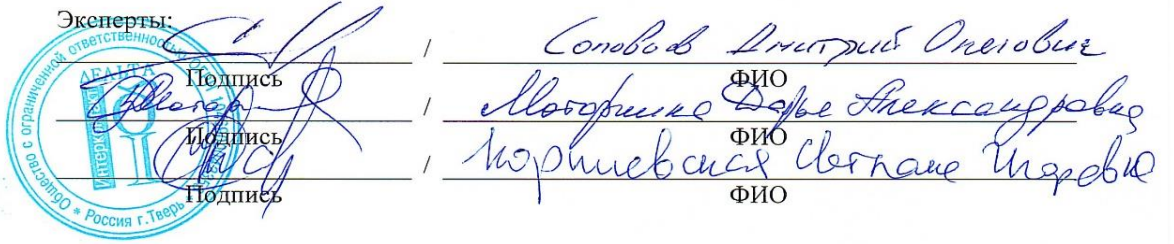 Эксперты:
/ Соловьев Дмитрий Олегович
Подпись ФИО
/ Моторкина Дарья Александровна
Подпись ФИО
/ Светлана Игоревна
Подпись ФИО
Общество с ограниченной ответственностью
ДЕЛЬТА
Россия г.Тверь